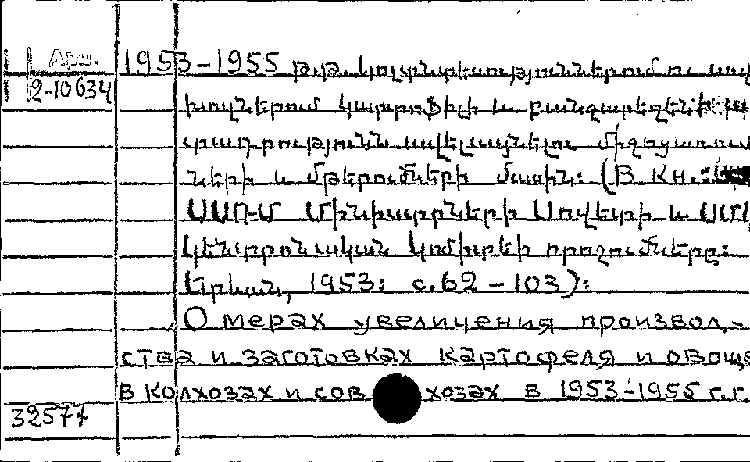 Арм.
2-10634
1953-1955 թթ. կոլտնտեսություններում ու սով
խոզներում կարտոֆիլի և բանջարեղենի
տադրությունն ավելացնելու միջոցառում
ների և մթերումների մասին: (В кн.:
ՍՍՌՄ Մինիստրների Սովետի և ՍՄ
կենտրոնական կոմիտեի որոշումները:
Երևան, 1953: с.62-103):
О мерах увеличения производ-
ства и заготовках картофеля и овоще
в колхозах и совхозах в 1953-1955 г.г.
32577